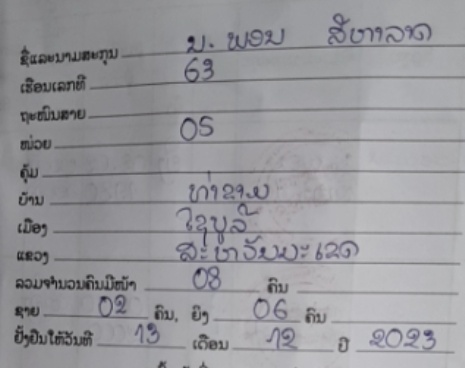 ຊື່ແລະນາມສະກຸນ ນ. ພອນ ສີຫາລາດ
ເຮືອນເລກທີ 63
ຖະໜົນສາຍ
ໜ່ວຍ 05
ຄຸ້ມ
ບ້ານ ທ່າຂາມ
ເມືອງ ໄຊບູລີ
ແຂວງ ສະຫວັນນະເຂດ
ລວມຈຳນວນຄົນມີໜ້າ 08 ຄົນ
ຊາຍ 02 ຄົນ, ຍິງ 06 ຄົນ
ຢັ້ງຢືນໃຫ້ວັນທີ 13 ເດືອນ 12 ປີ 2023